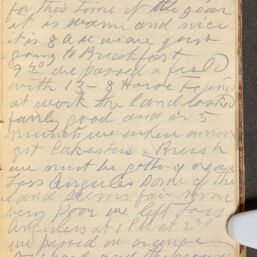 for this time of the year
it is warm and nice
it is 8 A.M. we are just
going to Breakfast
9 40 we passed a field
with 13 - 8 Horse Teams
at work the land looks
fairly good and in 5
minutes we where amon
gst Cakastus & Brush
we must be getting near
Los Angules Some of the
land seems fair some
very Poor we left Loss
Anguless at 1 PM at 2
we passed an orange